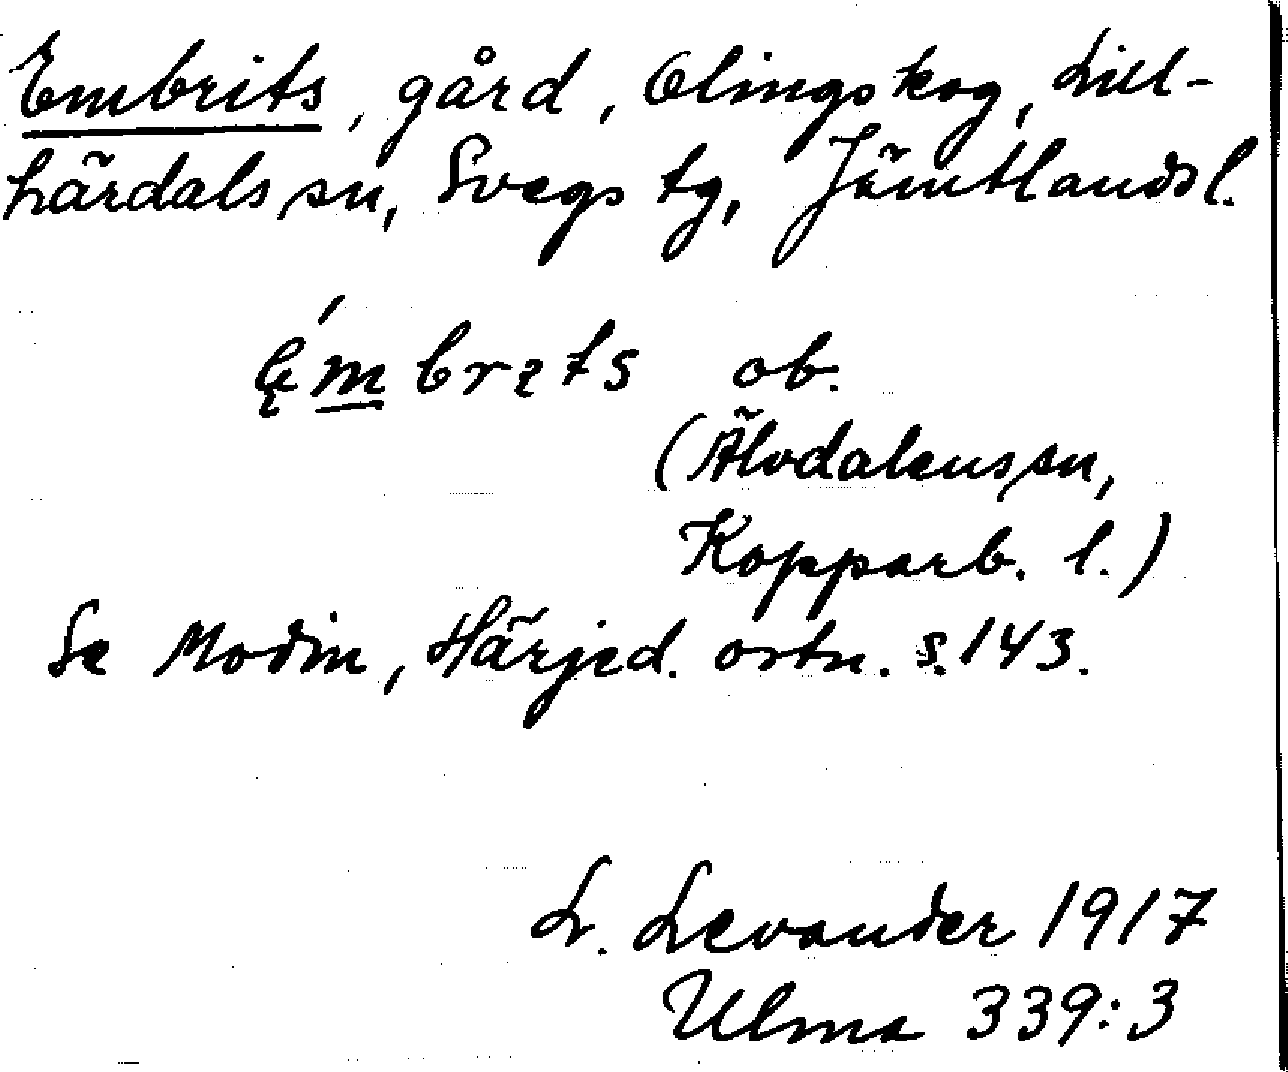 Embrits, gård, Olingskog, Lill-
härdals sn, Svegs tg, Jämtlands l.
ob.
(Älvdalens sn,
Kopparb. l.)
Se Modin, Härjed. ortn. s. 143.
L. Levander 1917
Ulma 339:3